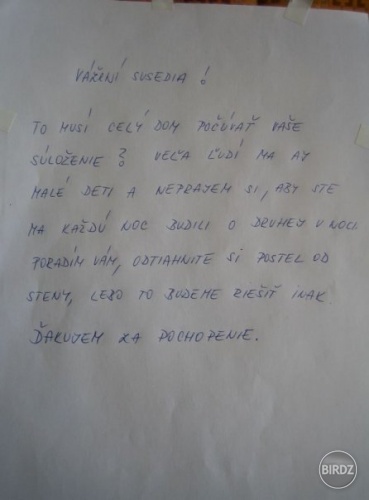 VÁŽENÍ SUSEDIA!
TO MUSÍ CELÝ DOM POČÚVAŤ VAŠE
SÚLOŽENIE? VEĽA ĽUDÍ MA AJ
MALÉ DETI A NEPRAJEM SI, ABY STE
MA KAŽDÚ NOC BUDILI O DRUHEJ V NOCI.
PORADÍM VÁM, ODTIAHNITE SI POSTEL OD
STENY, LEBO TO BUDEME RIEŠIŤ INAK
ĎAKUJEM ZA POCHOPENIE.
BIRDZ